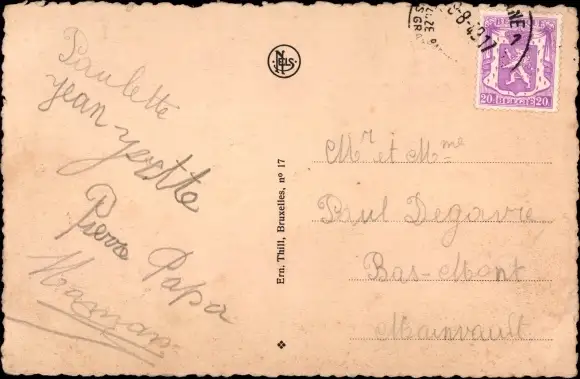 Paulette
Jean yvette
Pierre Papa
Maman
NELS
Ern. Thill, Bruxelles, nº 17
8-8-49 17
BELGIQUE
20 BELGIË 20
Mr et Mme
Paul Degavre
Bas-Mont
Mainvault